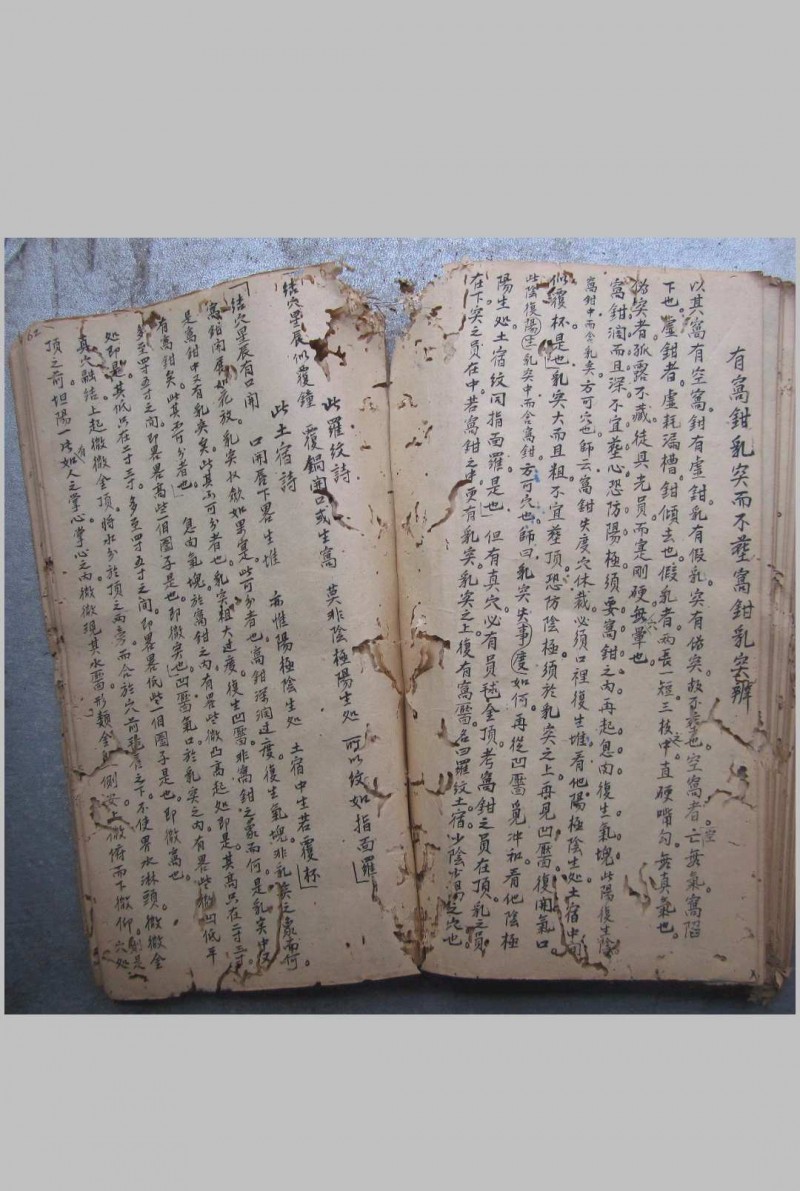 有窩鉗乳突而不塟窩鉗乳突辨
以其窩有空窩。鉗有虛鉗。乳有假乳。突有偽突。故不塟也。空窩者。亡無氣。窩陷
下也。虛鉗者。虛耗漏槽。鉗傾去也。假乳者。兩長一短。三枝中直硬嘴勾。無真氣也。
偽突者。孤露不藏。徒具光員而寔剛硬無暈也。
窩鉗濶而且深。不宜塟心。恐防陽極。須要窩鉗之內再起息肉。復生氣塊。此陽復生陰。
窩鉗中而含乳突。方可穴也。師云。窩鉗失度穴休裁。必須口裡復生堆。看他陽極陰生処。土宿中間
似覆杯是也。乳突大而且粗。不宜塟頂。恐防陰極。須於乳突之上再見凹靨。復開氣口。
此陰復陽生。乳突中而含窩鉗。方可穴也。師曰。乳突失事度如何。再從凹靨覓冲和。看他陰極
陽生処。土宿紋同指面羅是也。但有真穴。必有員毬金頂。考窩鉗之員在頂。乳之員
在下。突之員在中。若窩鉗之中。更有乳突。乳突之上。復有窩靨。名曰羅紋土宿。少陰少陽之穴也。
此羅紋詩
結穴星辰似覆鐘 覆鍋開口或生窩 莫非陰極陽生処 所以紋如指面羅
此土宿詩
結穴星辰有口開 口開唇下畧生堆 亦惟陽極陰生処 土宿中生若覆杯
窩鉗開展如花放。乳突收斂如果寔。此可分者也。窩鉗深濶過度。復生氣塊。非乳突之象而何。
是窩鉗中又有乳突矣。此其不可分者也。乳突粗大過度。復生凹靨。非窩鉗之象而何。是乳突中又
有窩鉗矣。此其不可分者也。息肉氣塊於窩鉗之內。有畧些微凸高起処即是。其高只在二寸三寸。
多至四寸五寸之間。即畧畧高些一個圈子是也。即微突也。凹靨氣口於乳突之內。有畧些微凹低平
処即是。其低只在二寸三寸。多至四寸五寸之間。即畧畧低些一個圈子是也。即微窩也。
真穴融結。上起微微金頂。將水分於頂之兩旁。而合於穴前唇之下。不使界水淋頭。微微金
頂之前。坦陽一片。如人之掌心。掌心之內。微微現其水靨。形類金 側安。上微俯而下微仰。穴処